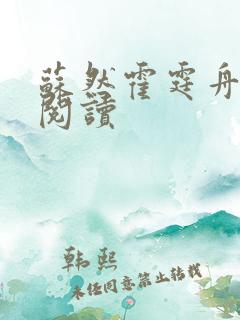 蘇然霍霆舟
閱讀
韩熙
未经同意禁止转载